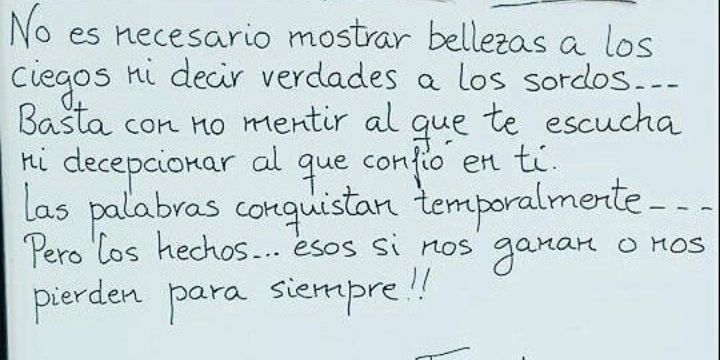 No es necesario mostrar bellezas a los
ciegos ni decir verdades a los sordos...
Basta con no mentir al que te escucha
ni decepcionar al que confió en ti.
Las palabras conquistan temporalmente....
Pero los hechos... esos si nos ganan o nos
pierden para siempre!!